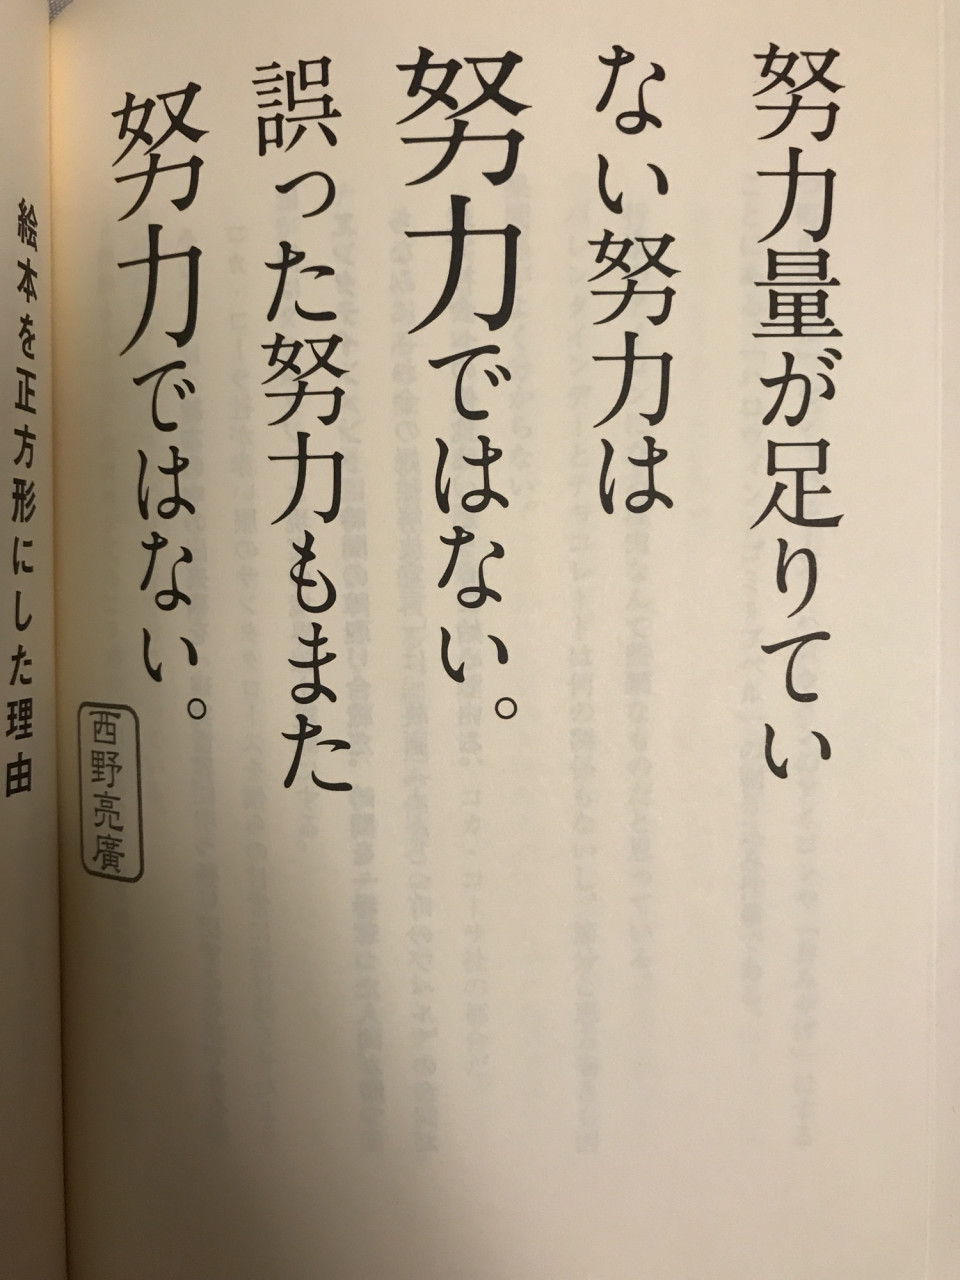 努力量が足りてい
ない努力は
努力ではない。
誤った努力もまた
努力ではない。
西野亮廣
絵本を正方形にした理由